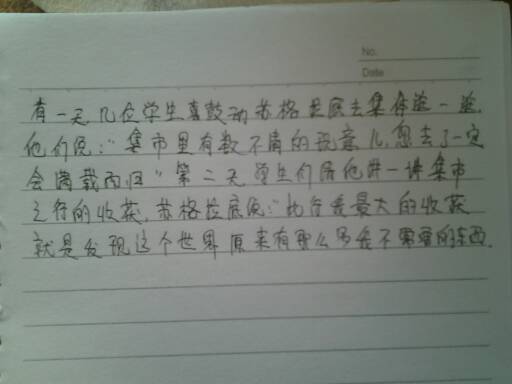 No.
Date
有一天几位学生喜鼓动苏格拉底去集市逛一逛.
他们说:"集市里有数不清的玩意儿,您去了一定
会满载而归"第二天学生们居他讲一讲集市
之行的收获,苏格拉底说:"此行我最大的收获
就是发现这个世界原来有那么多我不需要的东西.